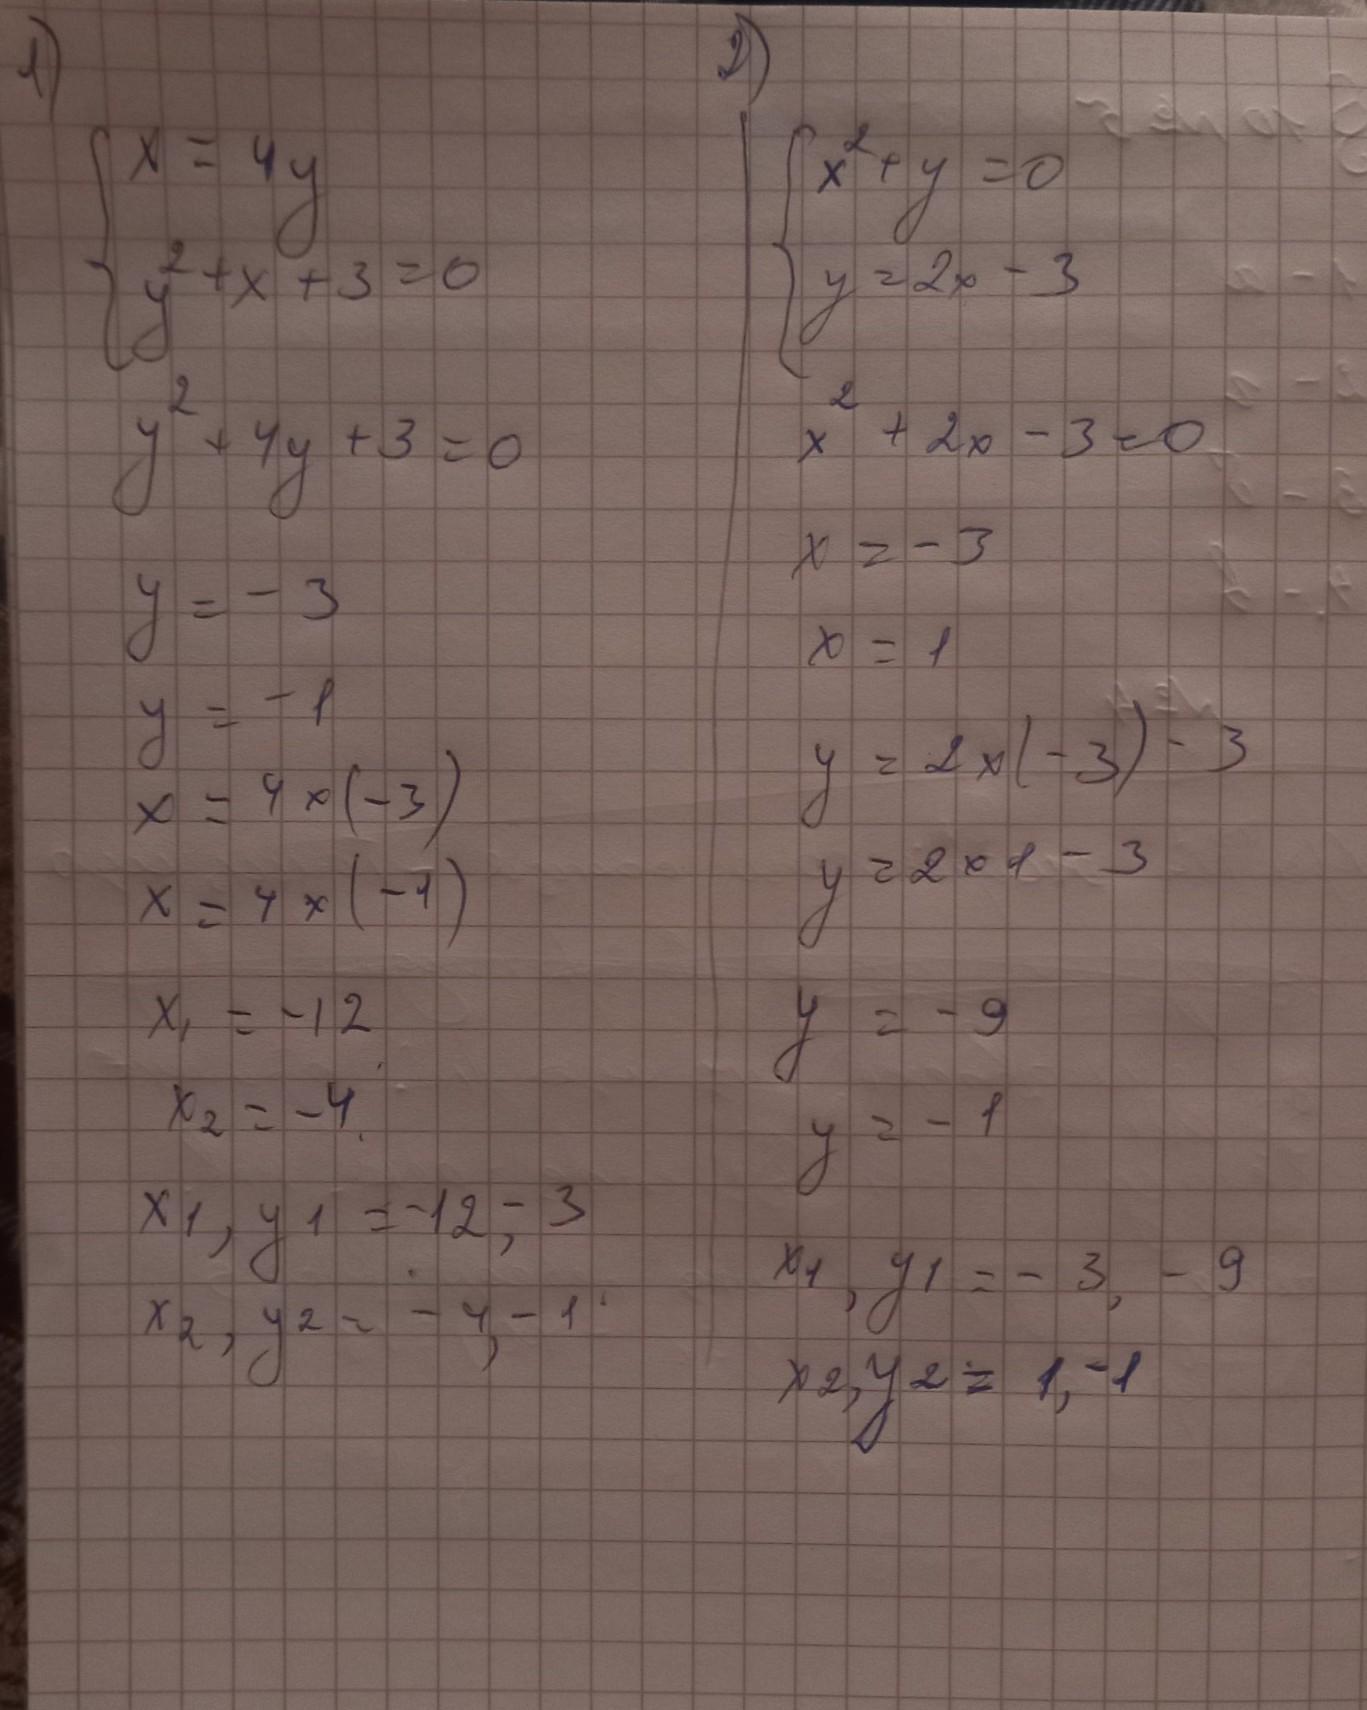 1)
x = 4y
y² + x + 3 = 0
y² + 4y + 3 = 0
y = - 3
y = - 1
x = 4 x (-3)
x = 4 x (-1)
x₁ = -12
x₂ = -4
x1, y1 = -12, -3
x2, y2 = -4, -1
2)
x² + y = 0
y = 2x - 3
x² + 2x - 3 = 0
x = - 3
x = 1
y = 2 x (-3) - 3
y = 2 x 1 - 3
y = - 9
y = - 1
x1, y1 = - 3, - 9
x2, y2 = 1, -1